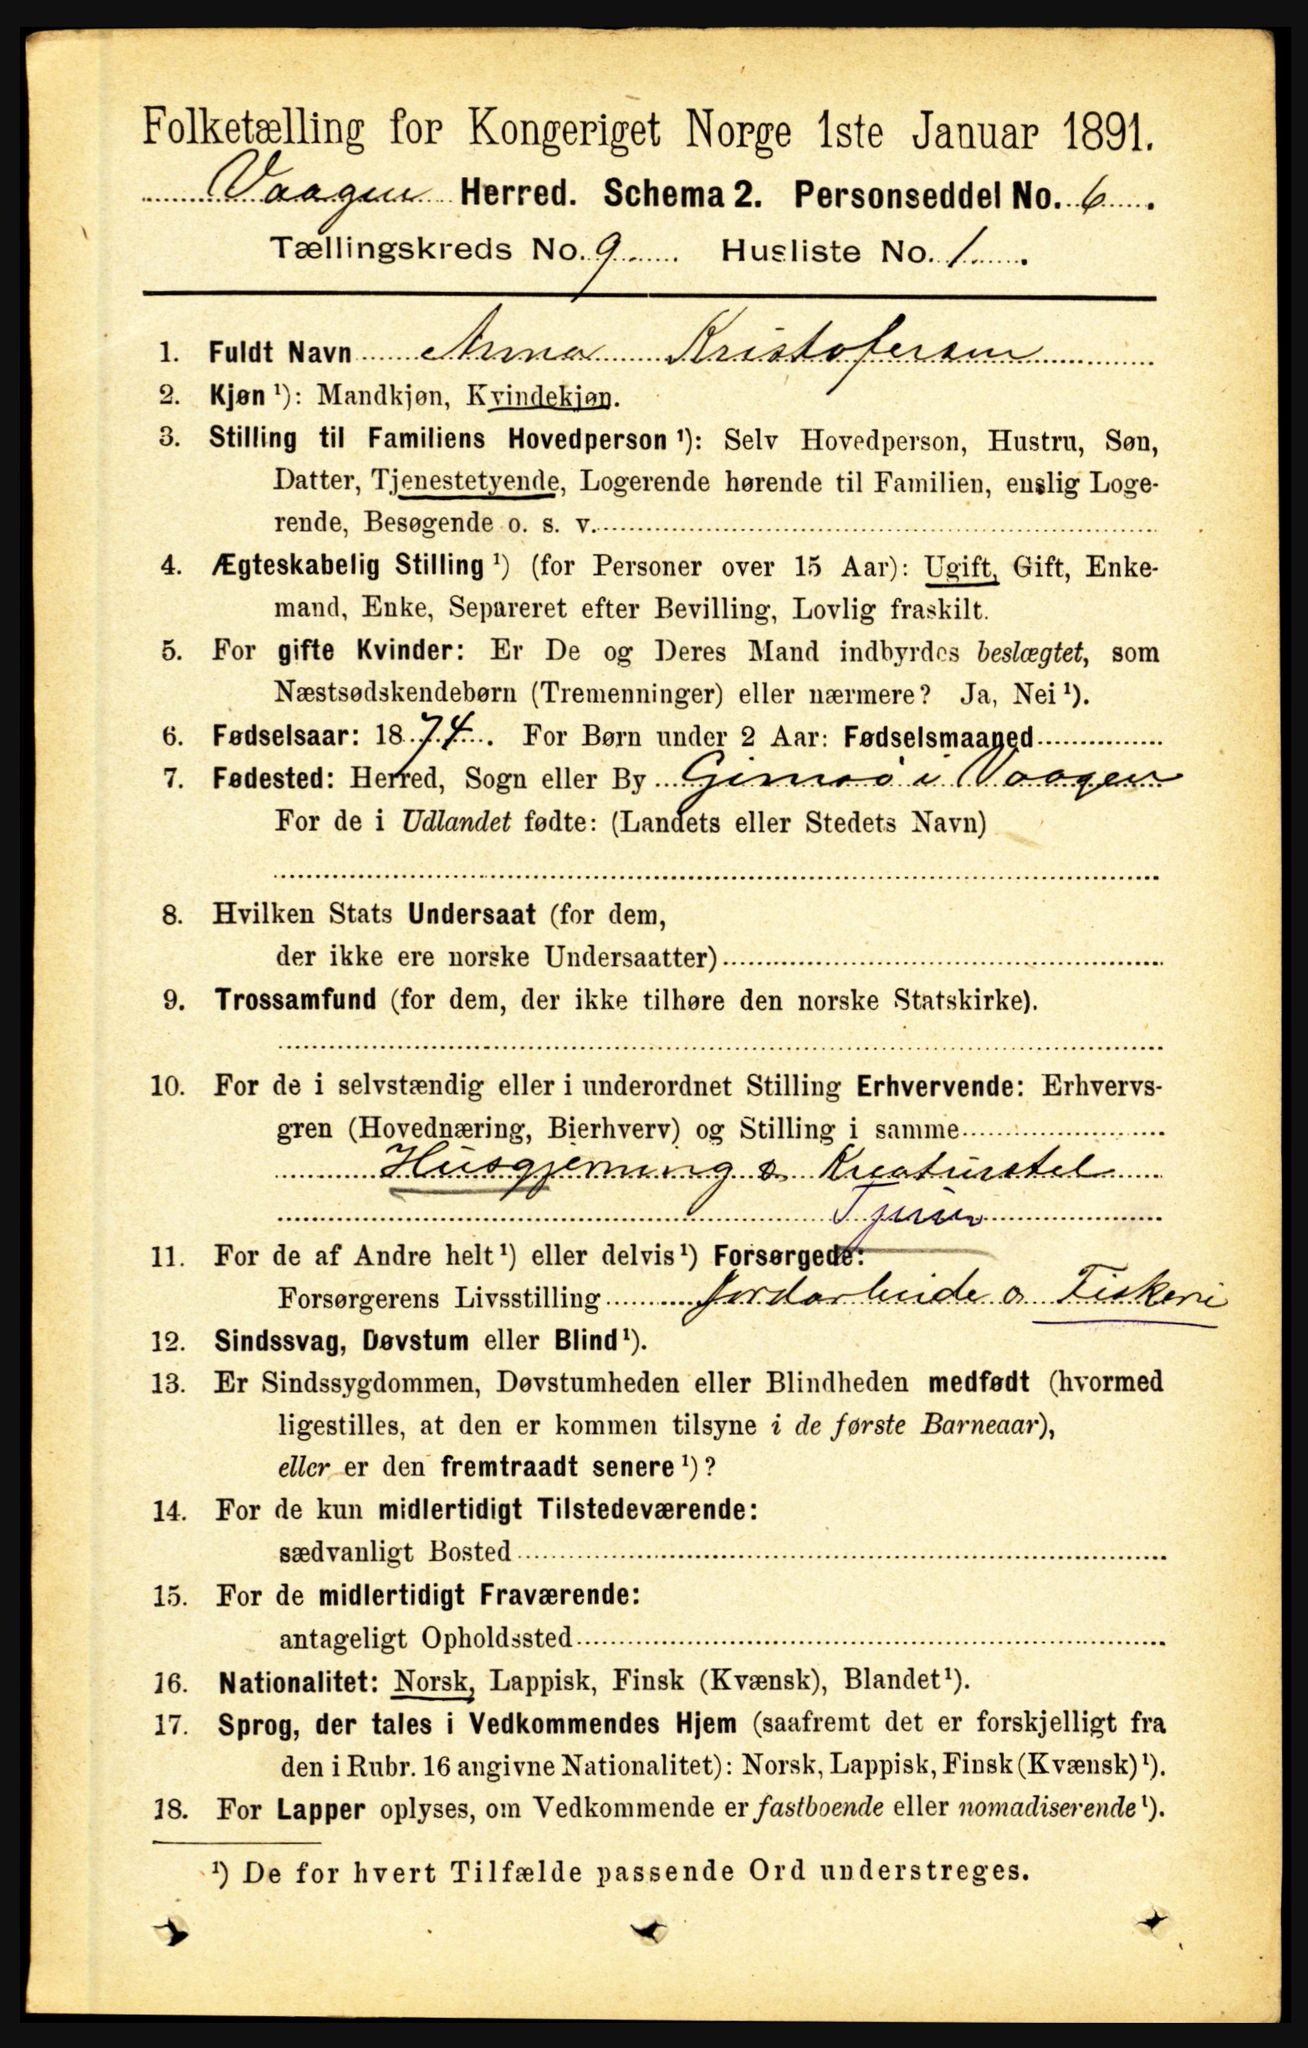 Folketælling for Kongeriget Norge 1ste Januar 1891.
Vaagen Herred. Schema 2. Personseddel No. 6.
Tællingskreds No. 9. Husliste No. 1.
1. Fuldt Navn Anna Kristofersen
2. Kjøn ¹): Mandkjøn, Kvindekjøn.
3. Stilling til Familiens Hovedperson ¹): Selv Hovedperson, Hustru, Søn,
Datter, Tjenestetyende, Logerende hørende til Familien, enslig Loge-
rende, Besøgende o. s. v.
4. Ægteskabelig Stilling ¹) (for Personer over 15 Aar): Ugift, Gift, Enke-
mand, Enke, Separeret efter Bevilling, Lovlig fraskilt.
5. For gifte Kvinder: Er De og Deres Mand indbyrdes beslægtet, som
Næstsødskendebørn (Tremenninger) eller nærmere? Ja, Nei ¹).
6. Fødselsaar: 1874. For Børn under 2 Aar: Fødselsmaaned
7. Fødested: Herred, Sogn eller By Gimsø i Vaagen
For de i Udlandet fødte: (Landets eller Stedets Navn)
8. Hvilken Stats Undersaat (for dem,
der ikke ere norske Undersaatter)
9. Trossamfund (for dem, der ikke tilhøre den norske Statskirke).
10. For de i selvstændig eller i underordnet Stilling Erhvervende: Erhvervs-
gren (Hovednæring, Bierhverv) og Stilling i samme
Husgjerning o Kreaturstel
11. For de af Andre helt ¹) eller delvis ¹) Forsørgede:
Forsørgerens Livsstilling Jordarbeide o Fiskeri
12. Sindssvag, Døvstum eller Blind ¹).
13. Er Sindssygdommen, Døvstumheden eller Blindheden medfødt (hvormed
ligestilles, at den er kommen tilsyne i de første Barneaar),
eller er den fremtraadt senere ¹)?
14. For de kun midlertidigt Tilstedeværende:
sædvanligt Bosted
15. For de midlertidigt Fraværende:
antageligt Opholdssted
16. Nationalitet: Norsk, Lappisk, Finsk (Kvænsk), Blandet ¹).
17. Sprog, der tales i Vedkommendes Hjem (saafremt det er forskjelligt fra
den i Rubr. 16 angivne Nationalitet): Norsk, Lappisk, Finsk (Kvænsk) ¹).
18. For Lapper oplyses, om Vedkommende er fastboende eller nomadiserende ¹).
¹) De for hvert Tilfælde passende Ord understreges.